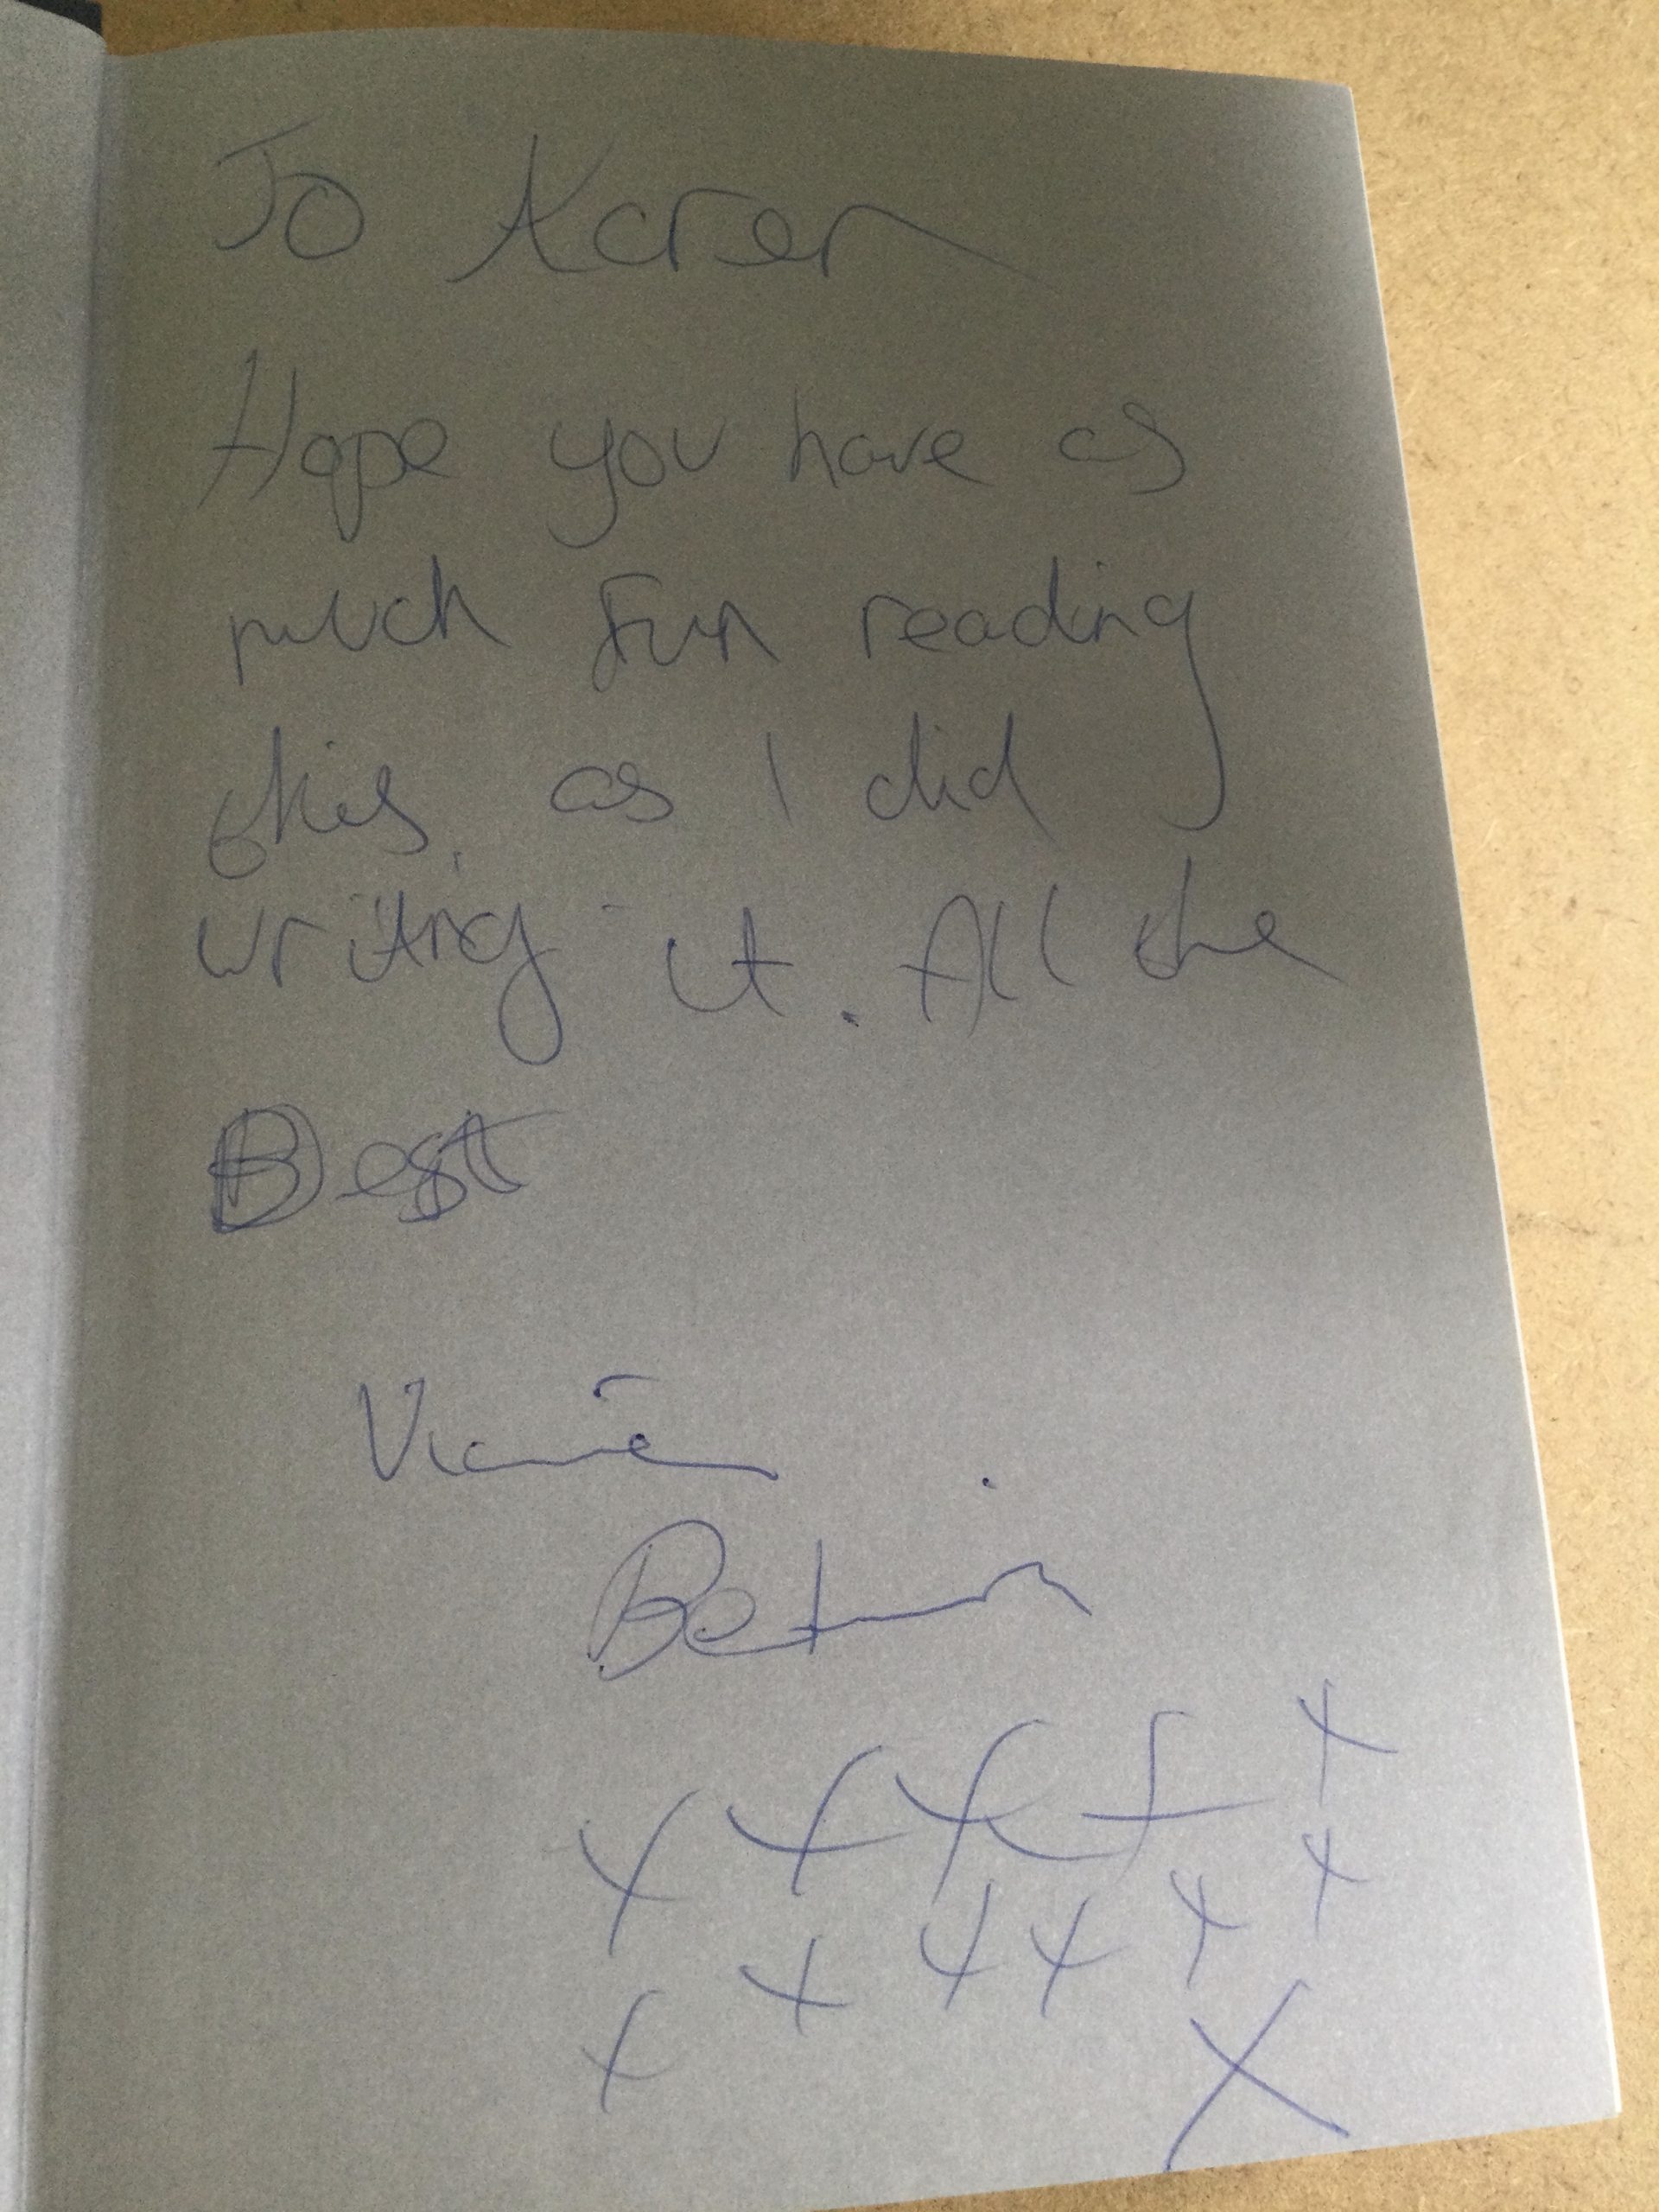 To Karen
Hope you have as
much fun reading
this, as I did
writing it. All the
Best
X X X X X
X X X X X X
X